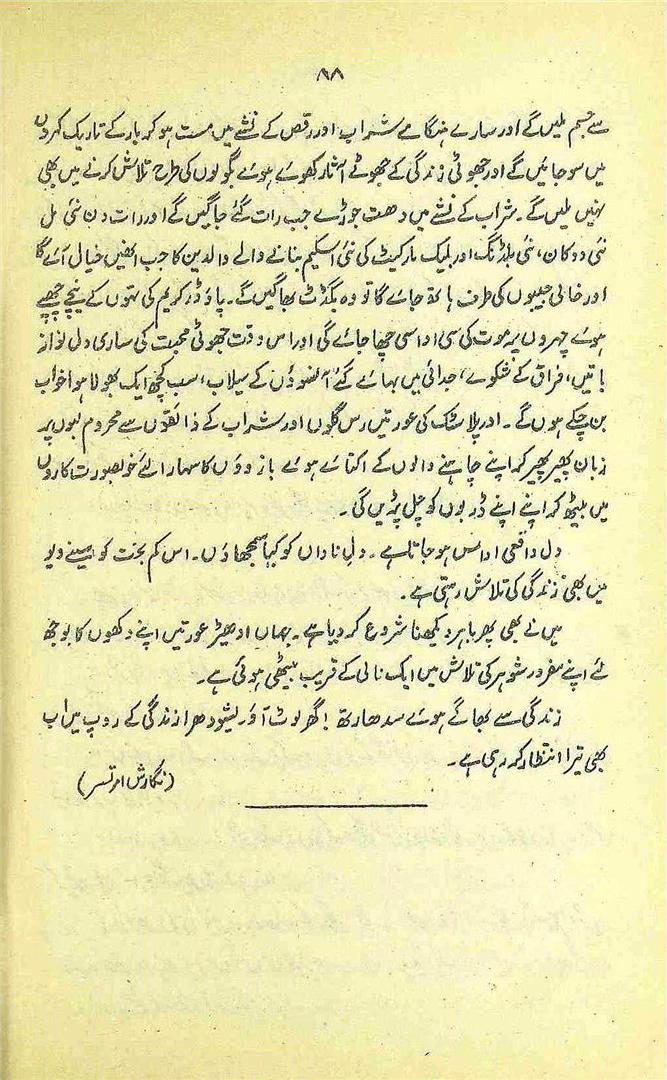 ۹۸
سے جسم ملیں گے اور سارے ہنگامے شراب اور رقص کے نشے میں مست ہو کر بار کے تاریک کمروں
میں سو جائیں گے اور جھوٹی زندگی کے جھوٹے آثار کھوئے ہوئے بگولوں کی طرح تلاش کرنے میں بھی
نہیں ملیں گے۔ شراب کے نشے میں دھت جوڑے جب رات گئے جاگیں گے اور رات دن نئی مل
نئی دوکان، نئی بلڈنگ اور بلیک مارکیٹ کی نئی اسکیم بنانے والے والدین کا جب انھیں خیال آئے گا
اور خالی جیبوں کی طرف ہاتھ جائے گا تو وہ بگٹٹ بھاگیں گے۔ پاؤڈر کریم کی تہوں کے نیچے چھپے
ہوئے چہروں پر موت کی سی اداسی چھا جائے گی اور اس وقت جھوٹی محبت کی ساری دل نواز
باتیں، فراق کے شکوے، جدائی میں بہائے گئے آنسوؤں کے سیلاب، سب کچھ ایک بھولا ہوا خواب
بن چکے ہوں گے۔ اور پلاسٹک کی عورتیں رس گلوں اور شراب کے ذائقوں سے محروم لبوں پر
زبان پھیر پھیر کر اپنے چاہنے والوں کے اکتائے ہوئے بازوؤں کا سہارا لئے خوبصورت کاروں
میں بیٹھ کر اپنے اپنے ڈربوں کو چل پڑیں گی۔
دل واقعی اداس ہو جاتا ہے۔ دل ناداں کو کیا سمجھاؤں۔ اس کم بخت کو ایسے ویو
میں بھی زندگی کی تلاش رہتی ہے۔
میں نے بھی پھر باہر دیکھنا شروع کر دیا ہے۔ جہاں ادھیڑ عورتیں اپنے دکھوں کا بوجھ
لئے اپنے مفرور شوہر کی تلاش میں ایک نالی کے قریب بیٹھی ہوئی ہے۔
زندگی سے بھاگے ہوئے سدھارتھ! گھر لوٹ آؤ۔ یشودھرا زندگی کے روپ میں اب
بھی تیرا انتظار کر رہی ہے۔
(نگارش امرتسر)